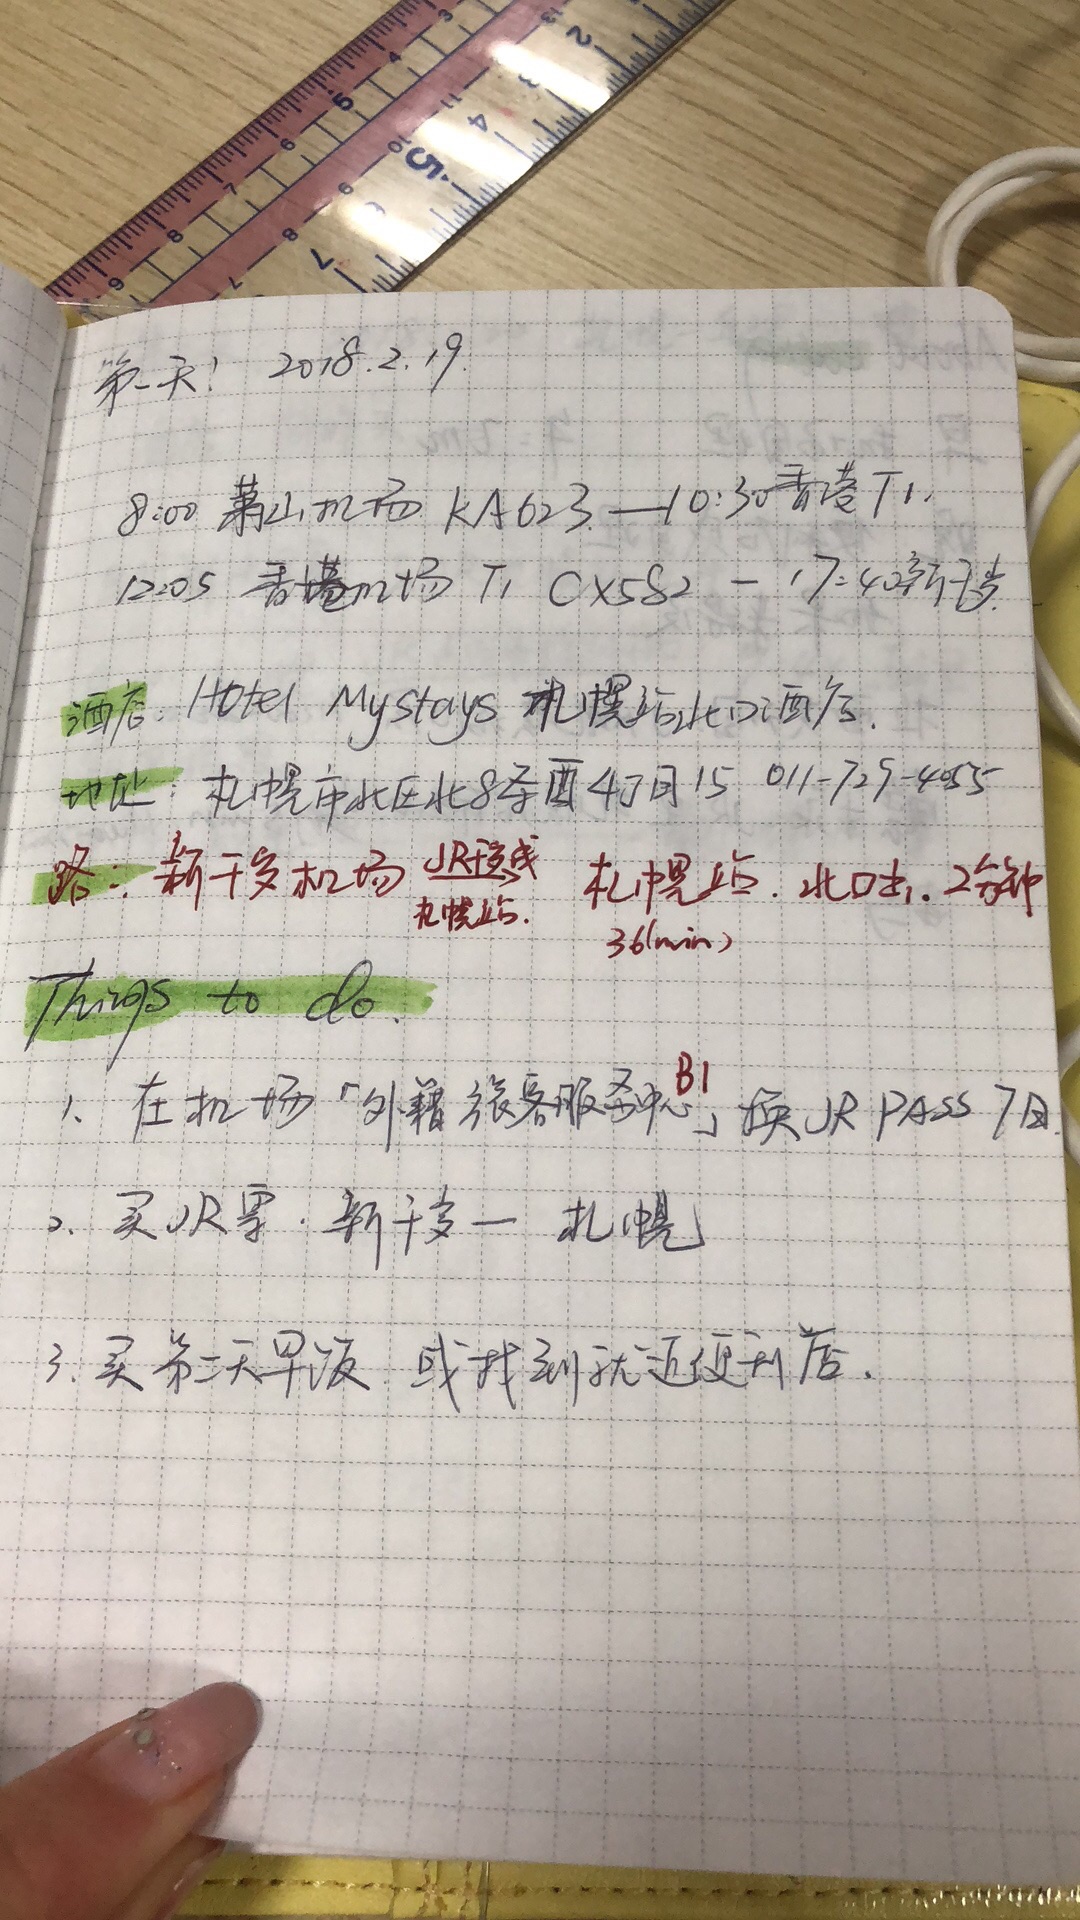 第一天! 2018.2.19.
8:00 萧山机场 KA623. — 10:30 香港 T1.
12:05 香港机场 T1 CX582 — 17:40 新千岁.
酒店: Hotel Mystays 札幌站北口酒店.
地址: 札幌市北区北8条西4丁目15 011-729-4055
路: 新千岁机场 JR千岁线 札幌站. 北口出. 2分钟
札幌站. 36(min)
Things to do.
1. 在机场「外籍旅客服务中心」B1 换 JR PASS 7日.
2. 买JR票. 新千岁 — 札幌
3. 买第二天早饭 或找到就近便利店.